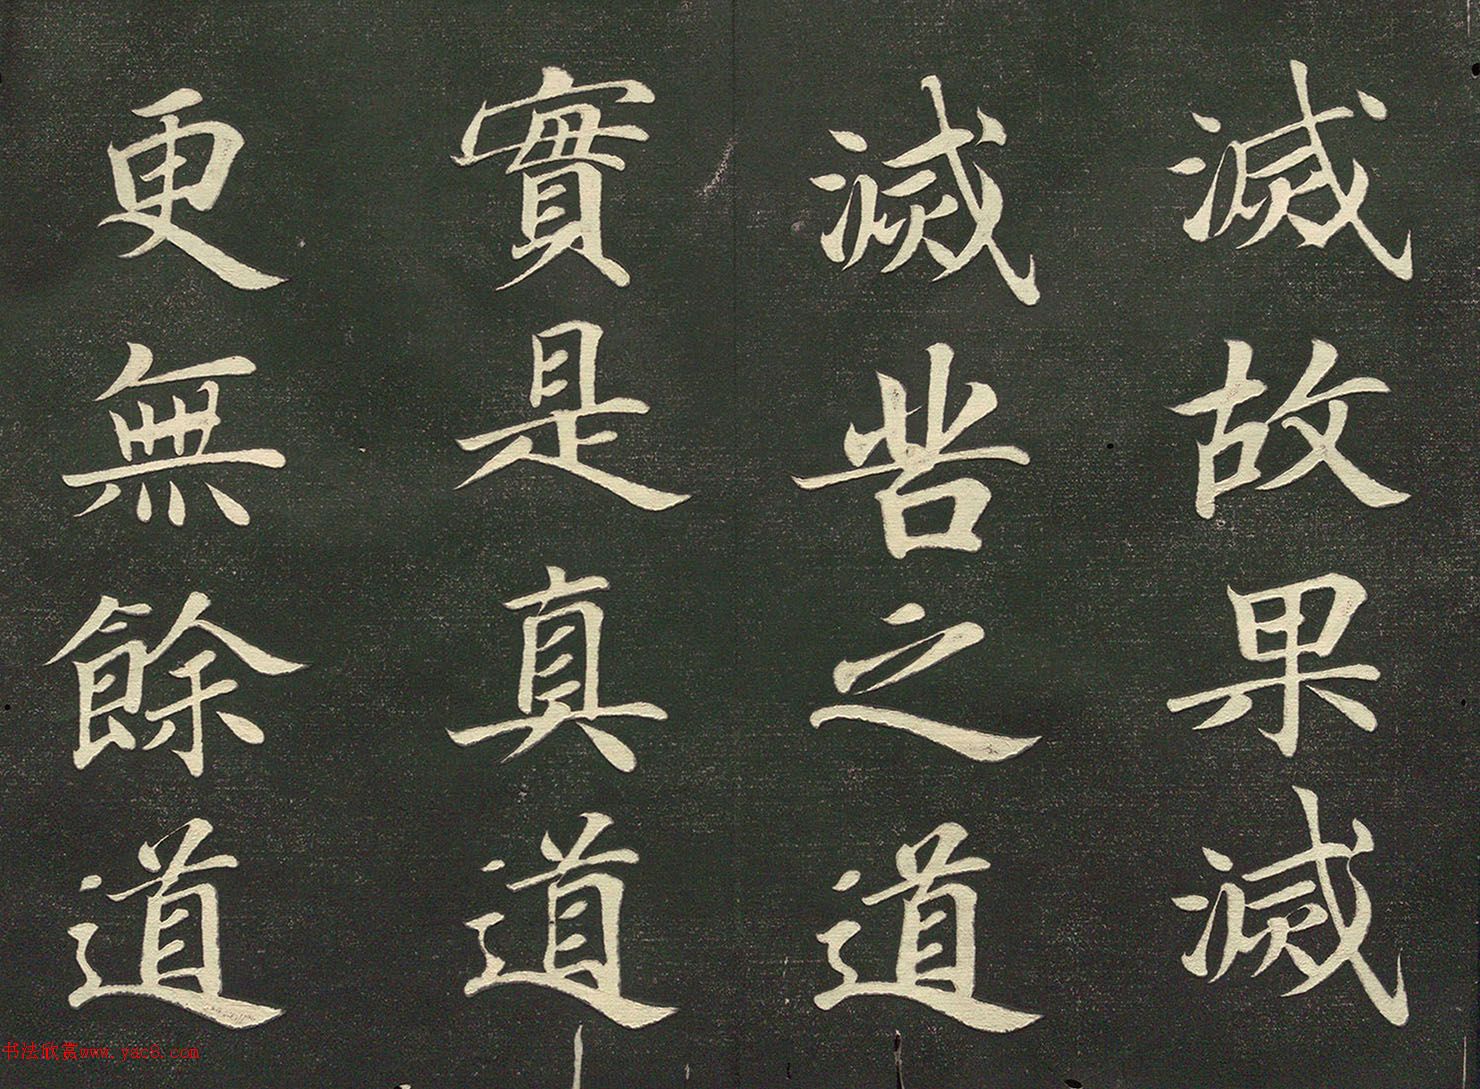 滅故果滅
滅苦之道
實是真道
更無餘道
书法欣赏www.yac8.com